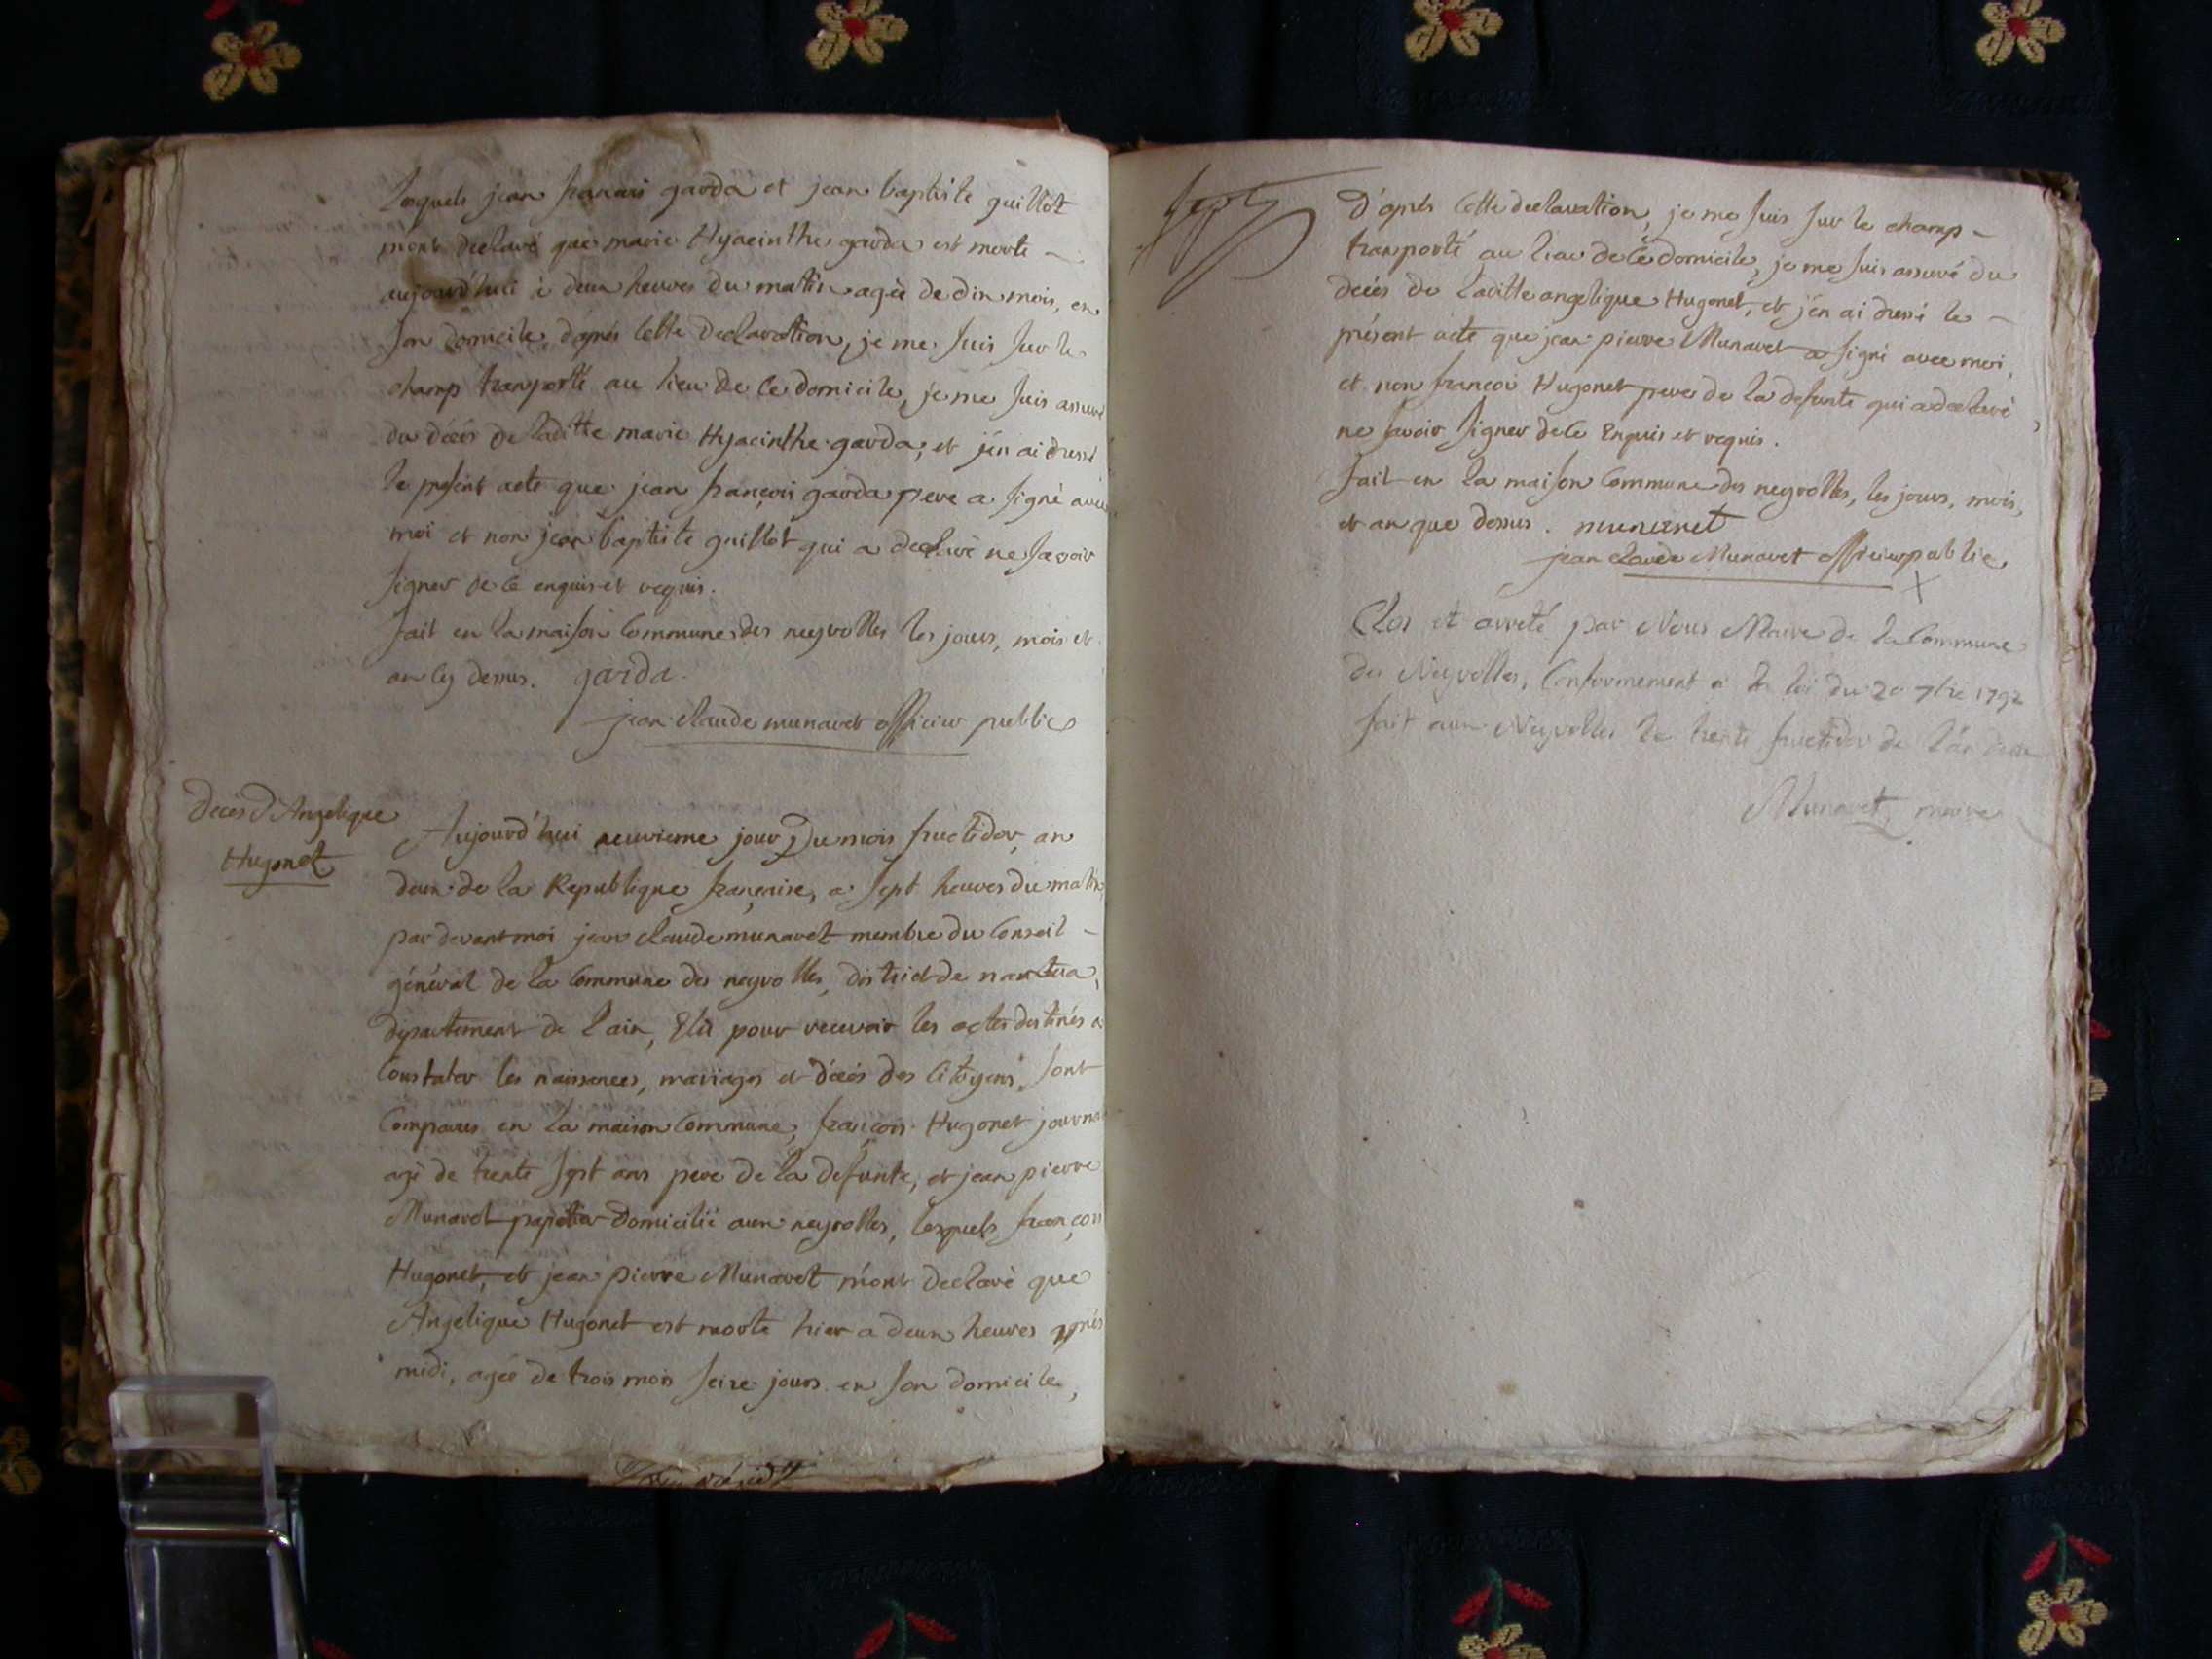 lesquels jean francois garda et jean baptiste guillot
mont declaré que marie Hyacinthe garda est morte
aujourd'hui à deux heures du matin agèe de dix mois, en
son domicile, d'après cette declaration, je me suis sur le
champ transporté au lieu de ce domicile, je me suis assuré
du décés de laditte marie Hyacinthe garda, et j'en ai dressé
le présent acte que jean françois garda pere a signé avec
moi et non jean baptiste guillot qui a declaré ne savoir
signer de ce enquis et requis.
fait en la maison Commune des neyrolles les jours, mois et
an cy dessus. garda.
jean claude munavet officier public
Decès D'Angelique
Hugonet
Aujourd'hui neuvieme jour Du mois fructidor, an
deux de la Republique françaises, a sept heures du matin,
par devant moi jean claude munavet membre du Conseil
général de la Commune des neyrolles, district de nantua,
département de lain, Elû pour recevoir les actes destinés a
Constater les naissances, mariages et décés des Citoyens, sont
Comparus en la maison Commune, françois Hugonet journa
agé de trente sept ans pere de la defunte, et jean pierre
Munavet papetier domicilié aux neyrolles, lesquels françois
Hugonet, et jean pierre Munavet m'ont declaré que
Angelique Hugonet est morte hier a deux heures après
midi, agée de trois mois seize jours en son domicile,
sept
D'après Cette declaration, je me suis sur le champ
transporté au lieu de ce domicile, je me suis assuré du
décés de laditte angelique Hugonet, et j'en ai dressé le
présent acte que jean pierre Munavet a signé avec moi,
et non françois Hugonet pere de la defunte qui a declaré
ne savoir signer de ce Enquis et requis.
fait en la maison Commune des neyrolles, les jours, mois,
et an que dessus. munavet
jean claude Munavet officier public
Clos et arreté par Nous Maire de la Commune
des Neyrolles, Conformement a la loi du 20 7bre 1792
fait aux Neyrolles le trente fructidor de l'an deux
Munavet maire